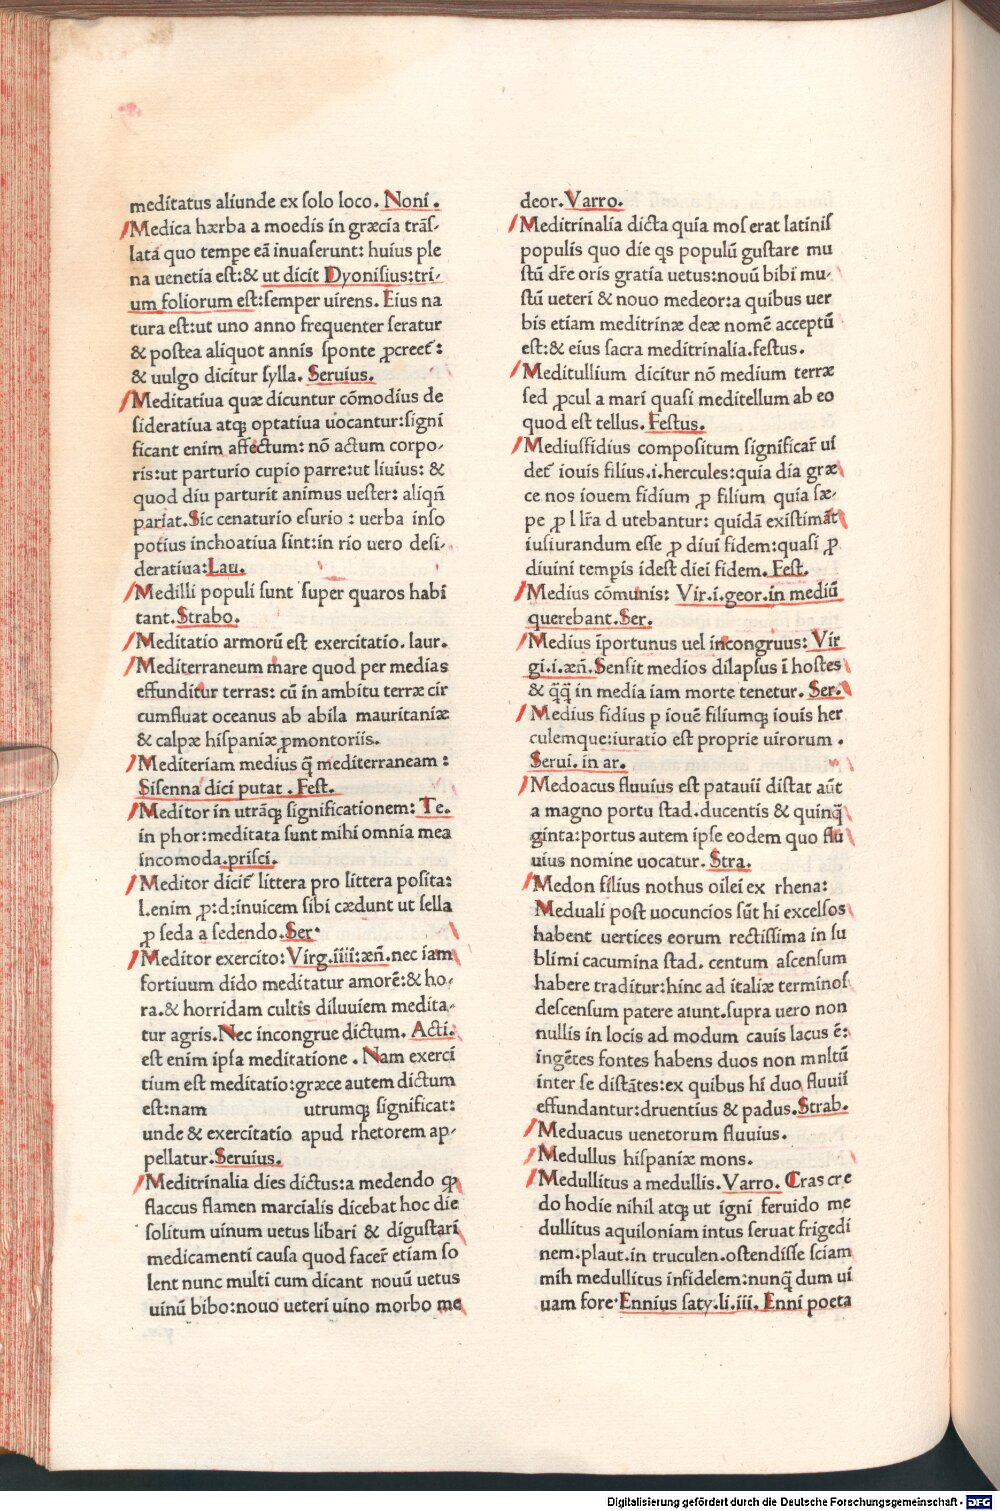 meditatus aliunde ex ſolo loco. Noni.
Medica hærba a moedis in græcia trãſ-
lata quo tempe eã inuaſerunt: huius ple
na uenetia eſt:& ut dicit Dyoniſius:tri-
um foliorum eſt:ſemper uirens. Eius na
tura eſt:ut uno anno frequenter ſeratur
& poſtea aliquot annis ſponte ꝓcreet̃:
& uulgo dicitur ſylla. Seruius.
Meditatiua quæ dicuntur cõmodius de
ſideratiua atqꝫ optatiua uocantur:ſigni
ficant enim affectum: nõ actum corpo-
ris:ut parturio cupio parre:ut liuius: &
quod diu parturit animus ueſter: aliqñ
pariat.Sic cenaturio eſurio : uerba inſo
potius inchoatiua ſint:in rio uero deſi-
deratiua:Lau.
Medilli populi ſunt ſuper quaros habi
tant.Strabo.
Meditatio armorũ eſt exercitatio. laur.
Mediterraneum mare quod per medias
effunditur terras: cũ in ambitu terræ cir
cumfluat oceanus ab abila mauritaniæ
& calpæ hiſpaniæ ꝓmontoriis.
Mediteriam medius q̃ mediterraneam :
Siſenna dici putat . Feſt.
Meditor in utrãqꝫ ſignificationem: Te.
in phor:meditata ſunt mihi omnia mea
incomoda.priſci.
Meditor dicit̃ littera pro littera poſita:
l.enim ꝓ:d:inuicem ſibi cædunt ut ſella
ꝓ ſeda a ſedendo.Ser.
Meditor exercito: Virg.iiii:æñ.nec iam
fortiuum dido meditatur amorẽ:& ho-
ra.& horridam cultis diluuiem medita-
tur agris.Nec incongrue dictum. Acti.
eſt enim ipſa meditatione . Nam exerci
tium eſt meditatio:græce autem dictum
eſt:nam utrumqꝫ ſignificat:
unde & exercitatio apud rhetorem ap-
pellatur.Seruius.
Meditrinalia dies dictus:a medendo ꝙ
flaccus flamen marcialis dicebat hoc die
ſolitum uinum uetus libari & diguſtari
medicamenti cauſa quod facer̃ etiam ſo
lent nunc multi cum dicant nouũ uetus
uinũ bibo:nouo ueteri uino morbo me
deor. Varro.
Meditrinalia dicta quia moſ erat latiniſ
populis quo die qs populũ guſtare mu
ſtũ dr̃e oris gratia uetus:nouũ bibi mu-
ſtũ ueteri & nouo medeor:a quibus uer
bis etiam meditrinæ deæ nomẽ acceptũ
eſt:& eius ſacra meditrinalia.feſtus.
Meditullium dicitur nõ medium terræ
ſed ꝓcul a mari quaſi meditellum ab eo
quod eſt tellus. Feſtus.
Mediuſfidius compoſitum ſignificar̃ ui
det̃ iouis filius.i.hercules:quia dia græ
ce nos iouem fidium ꝓ filium quia ſæ-
pe ꝓ l lr̃a d utebantur: quidã exiſtimãt
iuſiurandum eſſe ꝓ diui fidem:quaſi ꝓ
diuini tempis ideſt diei fidem. Feſt.
Medius cõmunis: Vir.i.geor.in mediũ
querebant. Ser.
Medius ĩportunus uel incongruus: Vir
gi.i.æñ.Senſit medios dilapſus ĩ hoſtes
& q̃q̃ in media iam morte tenetur. Ser.
Medius fidius p iouẽ filiumqꝫ iouis her
culemque:iuratio eſt proprie uirorum .
Serui. in ar.
Medoacus fluuius eſt patauii diſtat aũt
a magno portu ſtad.ducentis & quinq̃
ginta:portus autem ipſe eodem quo flu
uius nomine uocatur. Stra.
Medon filius nothus oilei ex rhena:
Meduali poſt uocuncios ſũt hi excelſos
habent uertices eorum rectiſſima in ſu
blimi cacumina ſtad. centum aſcenſum
habere traditur:hinc ad italiæ terminoſ
deſcenſum patere aiunt.ſupra uero non
nullis in locis ad modum cauis lacus ẽ:
ingẽtes fontes habens duos non mnltũ
inter ſe diſtãtes:ex quibus hi duo fluuii
effundantur:druentius & padus.Strab.
Meduacus uenetorum fluuius.
Medullus hiſpaniæ mons.
Medullitus a medullis. Varro. Cras cre
do hodie nihil atqꝫ ut igni feruido me
dullitus aquiloniam intus ſeruat frigedi
nem:plaut.in truculen.oſtendiſſe ſciam
mih medullitus infidelem:nunq̃ dum ui
uam fore.Ennius ſaty.li.iii. Enni poeta
Digitalisierung gefördert durch die Deutsche Forschungsgemeinschaft - DFG